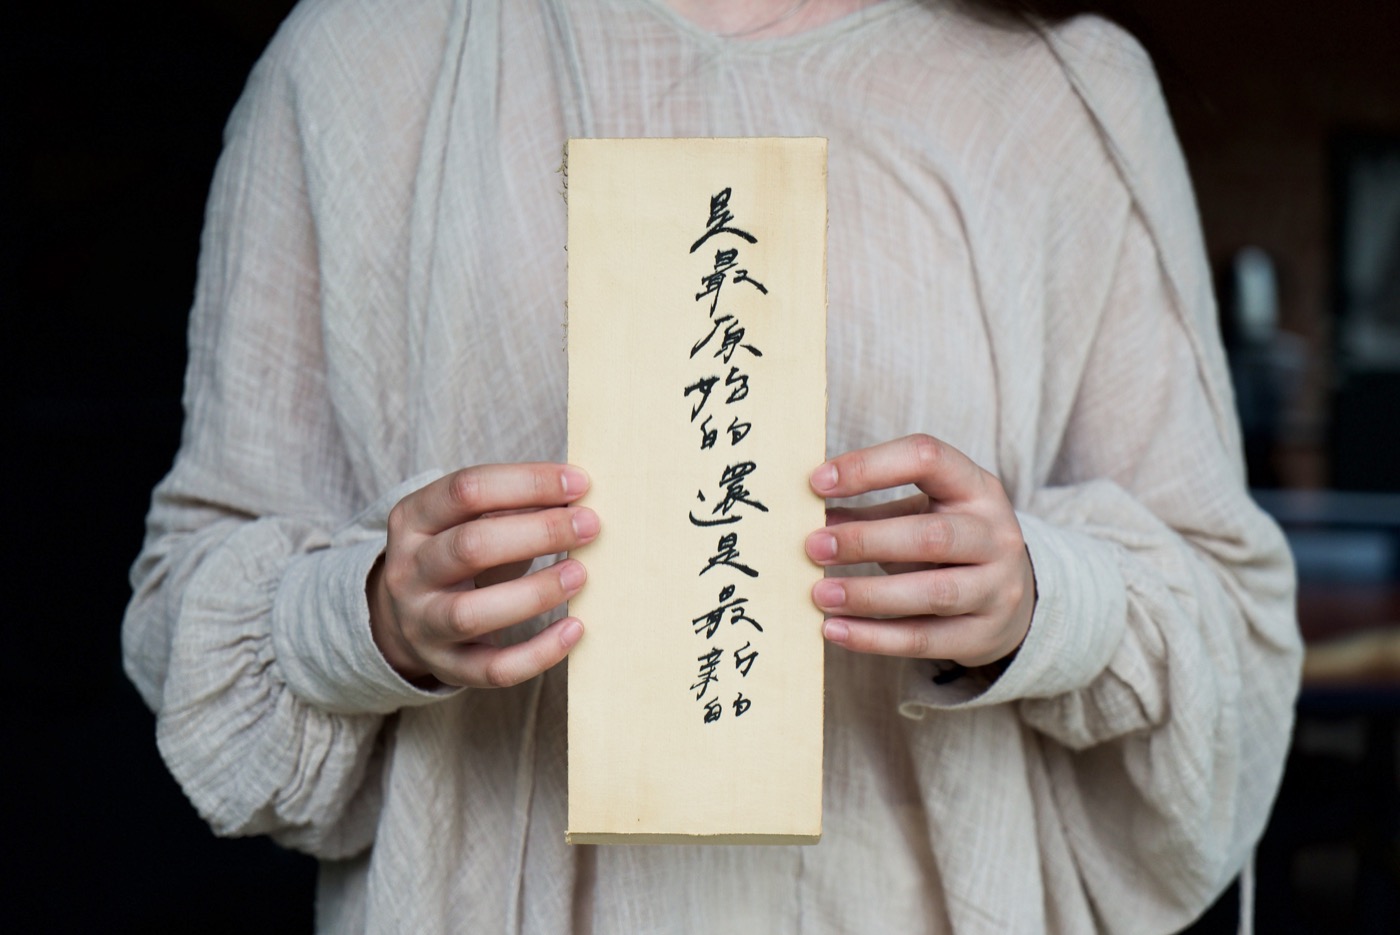 是最原始的還是最新的